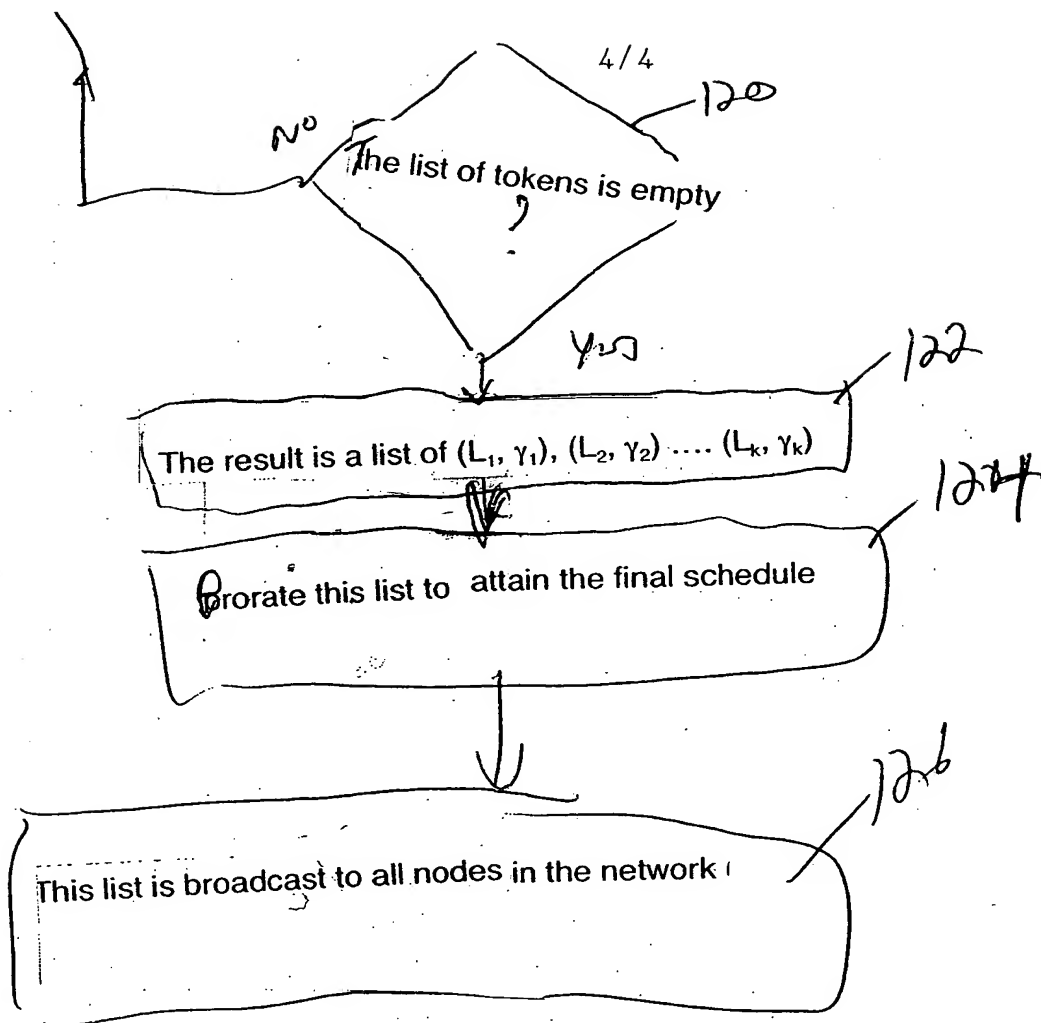 4/4
120
NO
The list of tokens is empty
?
Yes
122
The result is a list of (L₁, γ₁), (L₂, γ₂) .... (Lₖ, γₖ)
124
Prorate this list to attain the final schedule
126
This list is broadcast to all nodes in the network